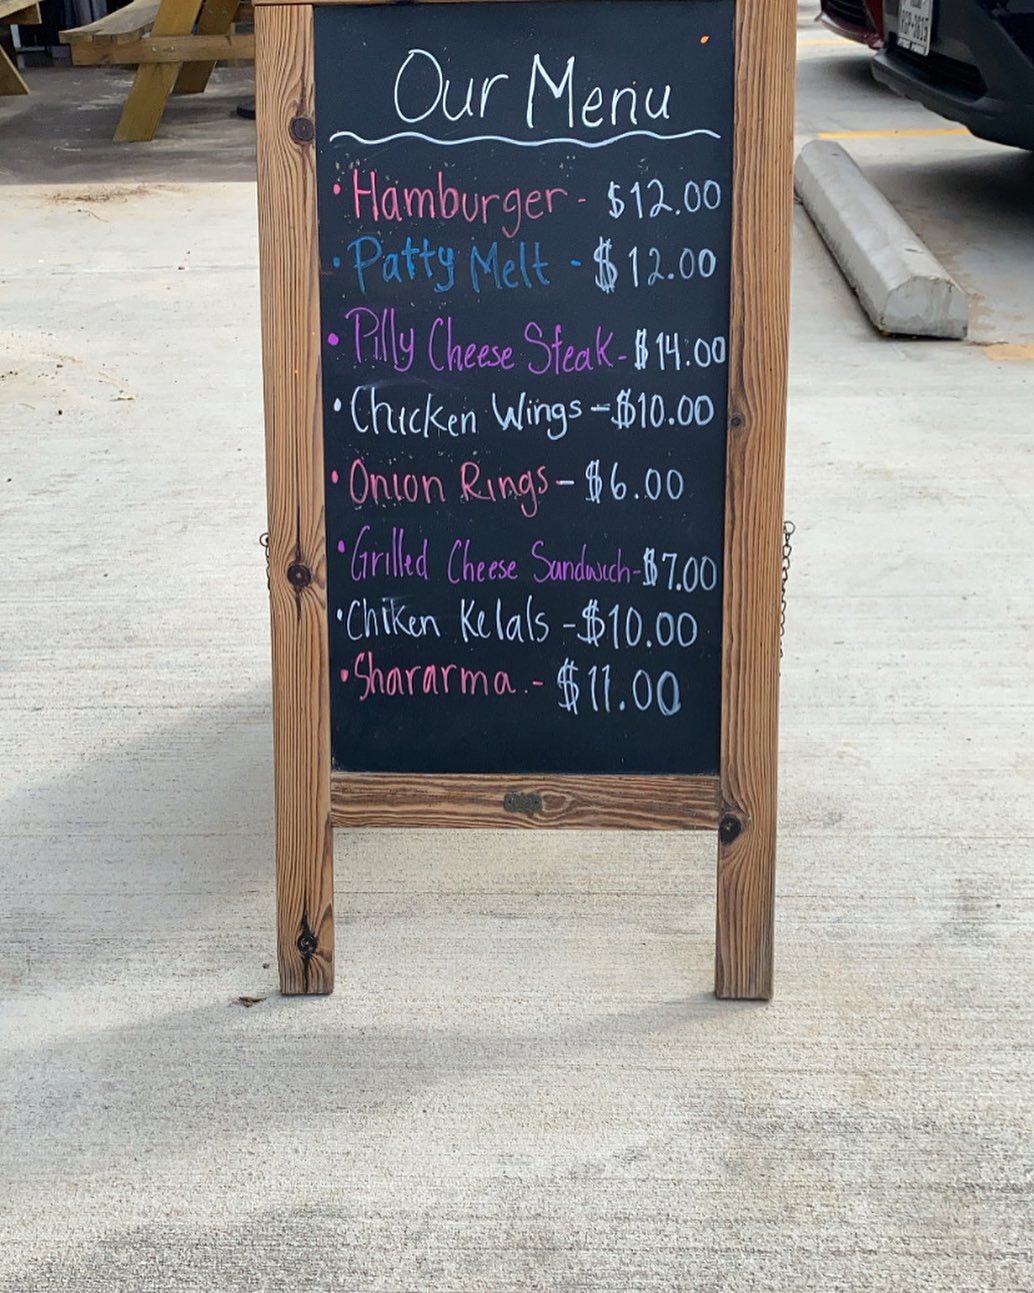 Our Menu
• Hamburger - $12.00
• Patty Melt - $12.00
• Pilly Cheese Steak - $14.00
• Chicken Wings - $10.00
• Onion Rings - $6.00
• Grilled Cheese Sandwich - $7.00
• Chiken Kelals - $10.00
• Shararma. - $11.00